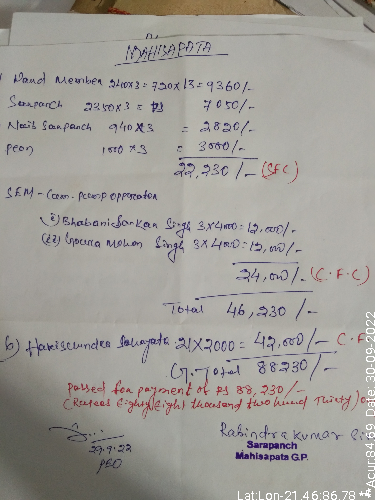 MAHISAPATA
Ward Member 240x3=720x13=9360/-
Sarpanch 2350x3= 7050/-
Naib Sarpanch 940x3 = 2820/-
peon 1000x3 = 3000/-
22,230/- (SFC)
SEM-Cum-pump opparator
(i) Bhabani Sankar Singh 3x4000=12,000/-
(ii) Goura Mohan Singh 3x4000=12,000/-
24,000/- (C.F.C)
Total 46,230/-
Harischandra Sahayata 21x2000=42,000/- C.F
G.Total 88230/-
passed for payment of Rs 88,230/-
(Rupees Eighty Eight thousand two hund Thirty) o
29.9.22
PEO
Rabindra Kumar Si
Sarapanch
Mahisapata G.P.
Lat:Lon-21.46:86.78
**Acur:84.69 Date, 30-09-2022